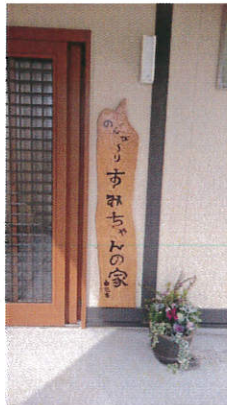 のんびーり
すみちゃんの家